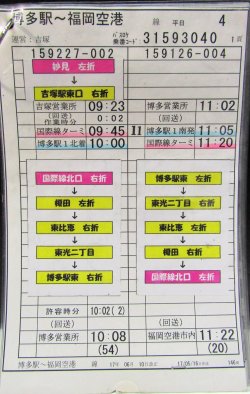 博多駅～福岡空港 線 平日 4
運営:吉塚 31593040 1頁
159227-002 159126-004
妙見 左折
吉塚駅東口 右折
吉塚営業所 09:23 博多営業所 11:02
(回送) 0:02 (回送)
作業時分
国際線ターミ 09:45 II 博多駅1南発 11:05
博多駅1北着 10:00 国際線ターミ 11:20
国際線北口 右折 博多駅東 左折
榎田 左折 東光二丁目 左折
東比恵 右折 東比恵 左折
東光二丁目 右折 榎田 右折
博多駅東 右折 国際線北口 左折
許容時分 10:02( 2)
(回送) (回送)
博多営業所 10:08 福岡空港市内 11:22
(54) (20)
博多駅～福岡空港 線 17年 06月 10日 17/05/16